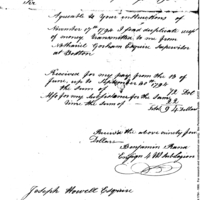 Sir
Agreeable to Your instructions of
November 17th 1794 I send duplicate receipt
of money transmitted to me from
Nathaniel Gorham Esquire Supervisor
at Boston
Received for my pay from the 13 of
June, up to September 30th 1794
the Sum of 72 Dol
Also for my Subsistance for the Same
time the Sum of 22
Total 94 Dollars
Received the above ninety four
Dollars
Benjamin Rand
Ensign 4th Sub Legion
Joseph Howell Esquire